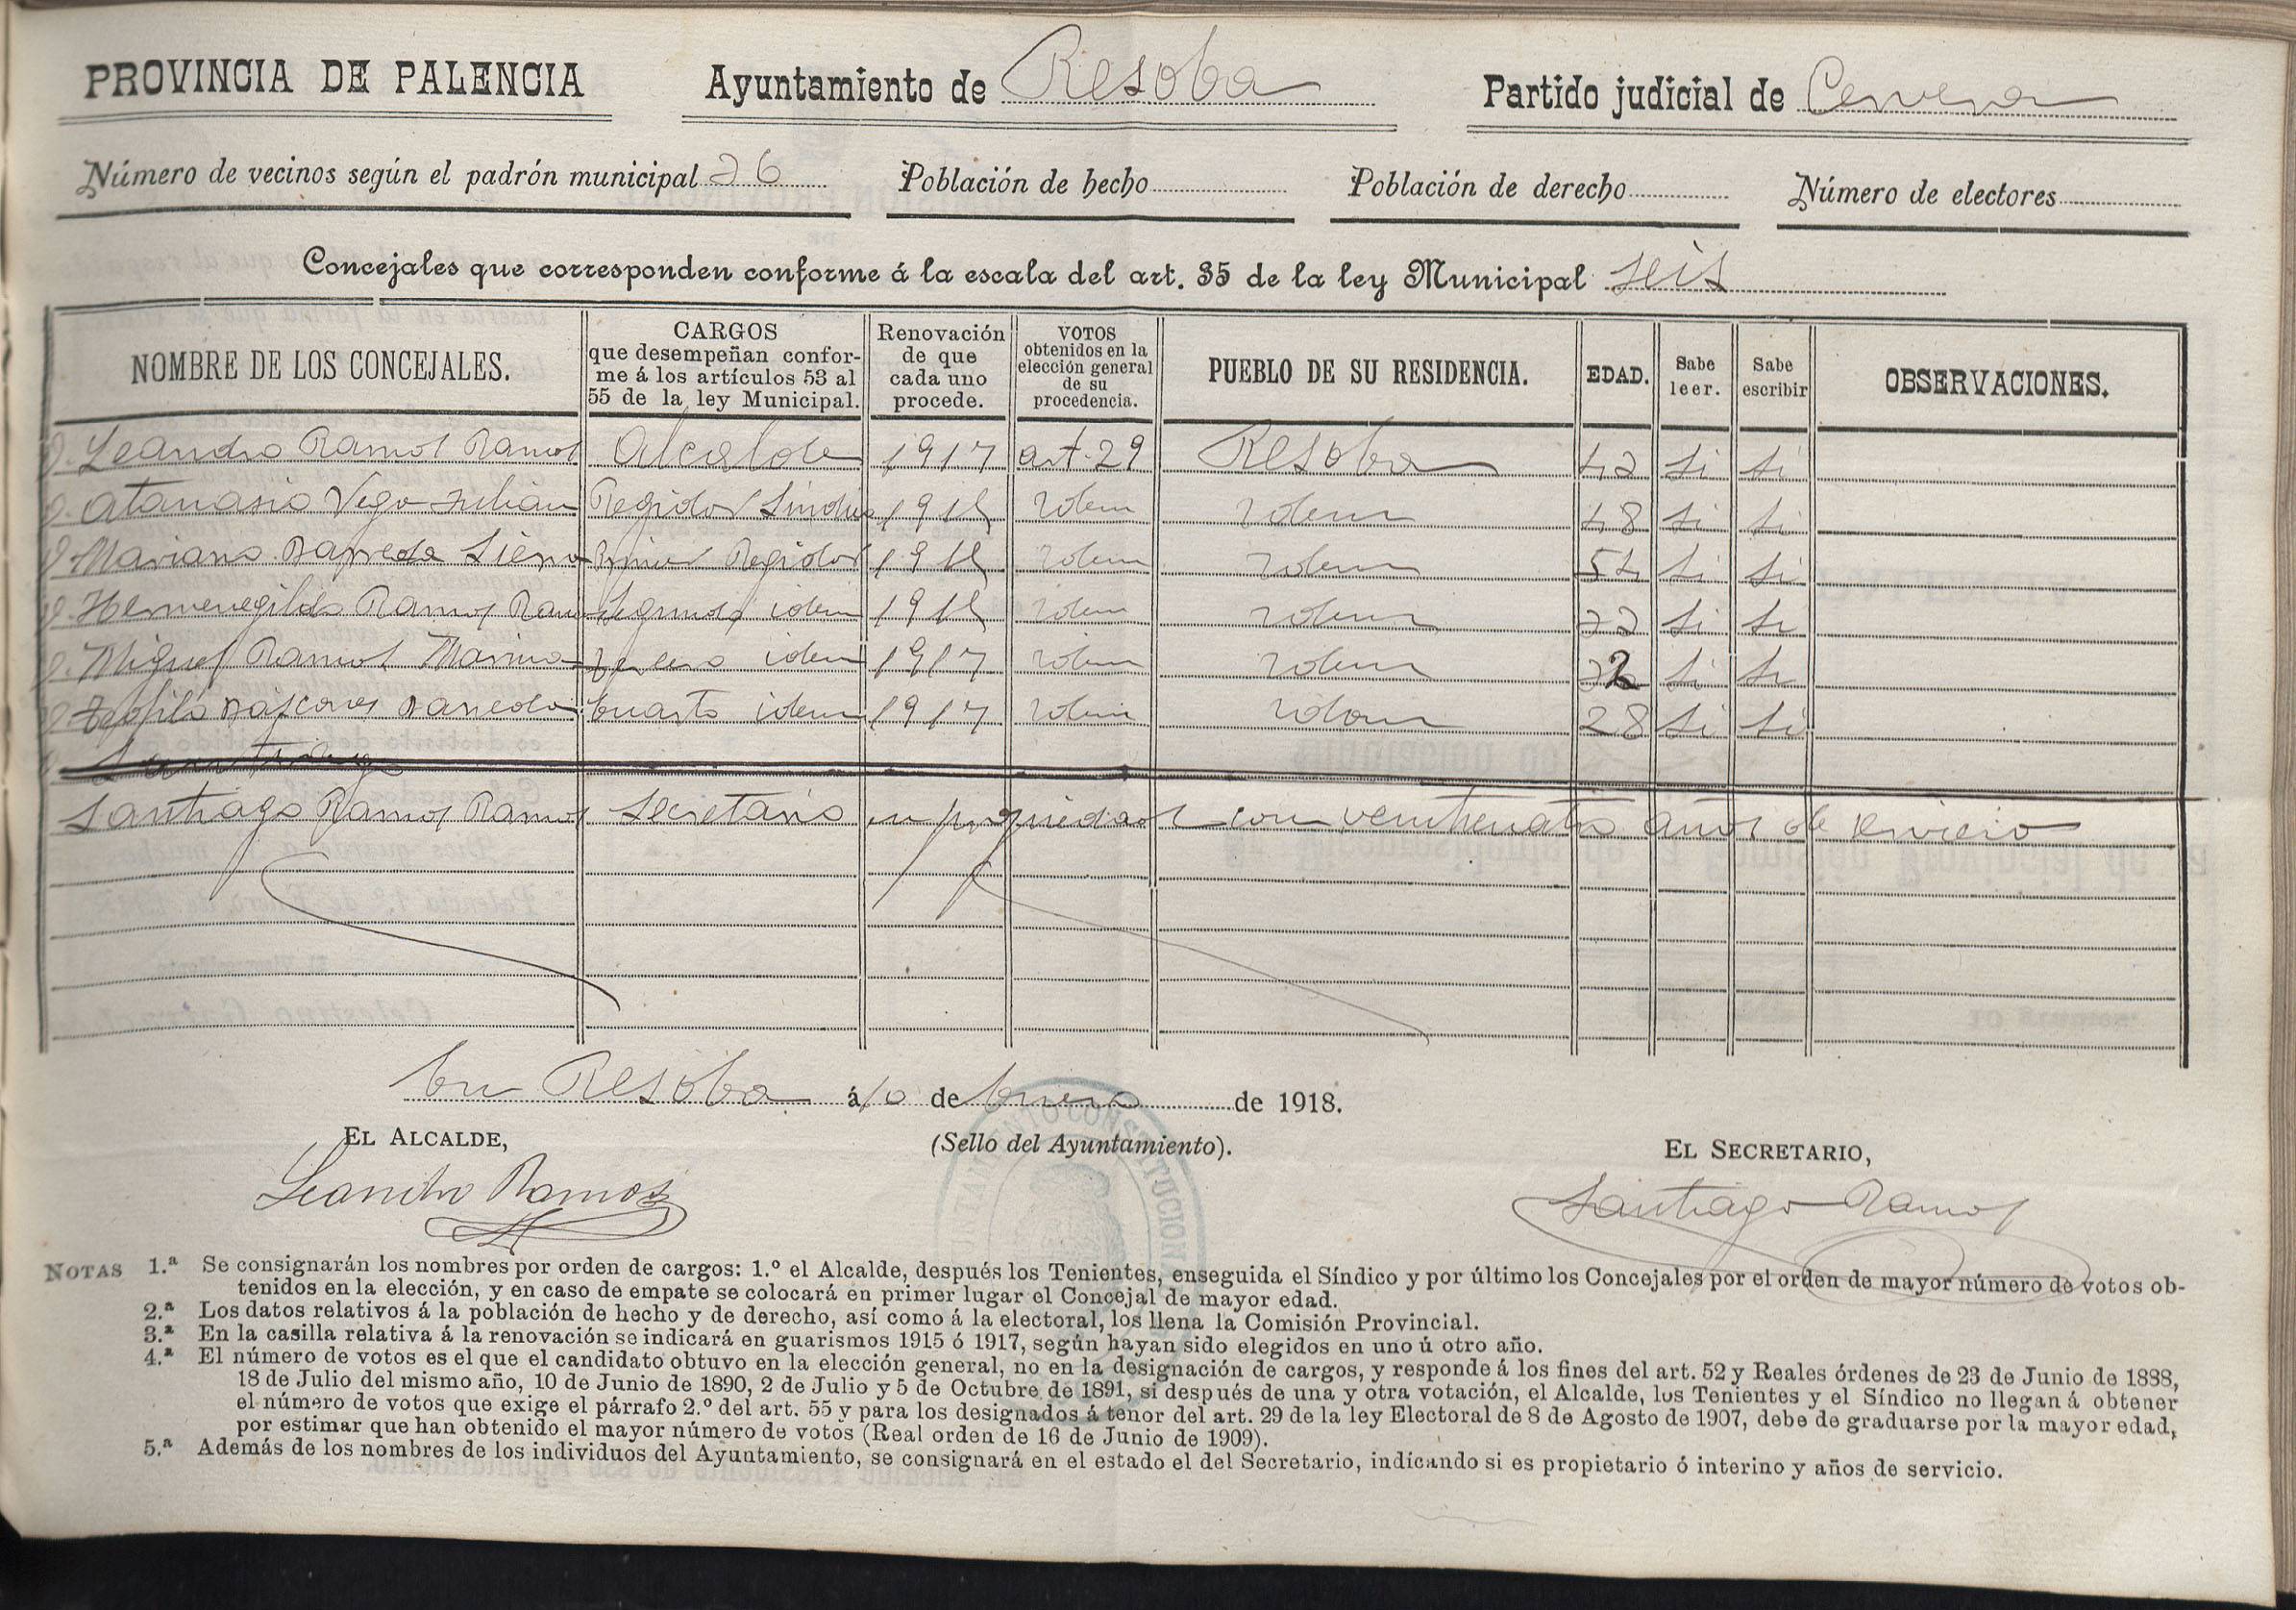 PROVINCIA DE PALENCIA Ayuntamiento de Resoba Partido judicial de Cervera
Número de vecinos según el padrón municipal 26 Población de hecho Población de derecho Número de electores
Concejales que corresponden conforme á la escala del art. 35 de la ley Municipal seis
NOMBRE DE LOS CONCEJALES. CARGOS que desempeñan conforme á los artículos 53 al 55 de la ley Municipal. Renovación de que cada uno procede. VOTOS obtenidos en la elección general de su procedencia. PUEBLO DE SU RESIDENCIA. EDAD. Sabe leer. Sabe escribir OBSERVACIONES.
D. Leandro Ramos Ramos Alcalde 1917 art. 29 Resoba 42 si si
D. Atanasio Vega Julian Regidor Sindico 1915 idem idem 48 si si
D. Mariano Barreda Sierra Primer Regidor 1915 idem idem 54 si si
D. Hermenegildo Ramos Ramos Segundo idem 1915 idem idem si si
D. Miguel Ramos Marina tercero idem 1917 idem idem si si
D. Teofilo Báscones Barreda Cuarto idem 1917 idem idem 28 si si
Santiago Ramos Ramos Secretario en propiedad con veinticuatro años de servicio
En Resoba á 10 de Enero de 1918.
EL ALCALDE, (Sello del Ayuntamiento). EL SECRETARIO,
Leandro Ramos Santiago Ramos
NOTAS 1.ª Se consignarán los nombres por orden de cargos: 1.º el Alcalde, después los Tenientes, enseguida el Síndico y por último los Concejales por el orden de mayor número de votos ob-
tenidos en la elección, y en caso de empate se colocará en primer lugar el Concejal de mayor edad.
2.ª Los datos relativos á la población de hecho y de derecho, así como á la electoral, los llena la Comisión Provincial.
3.ª En la casilla relativa á la renovación se indicará en guarismos 1915 ó 1917, según hayan sido elegidos en uno ú otro año.
4.ª El número de votos es el que el candidato obtuvo en la elección general, no en la designación de cargos, y responde á los fines del art. 52 y Reales órdenes de 23 de Junio de 1888,
18 de Julio del mismo año, 10 de Junio de 1890, 2 de Julio y 5 de Octubre de 1891, si después de una y otra votación, el Alcalde, los Tenientes y el Síndico no llegan á obtener
el número de votos que exige el párrafo 2.º del art. 55 y para los designados á tenor del art. 29 de la ley Electoral de 8 de Agosto de 1907, debe de graduarse por la mayor edad,
por estimar que han obtenido el mayor número de votos (Real orden de 16 de Junio de 1909).
5.ª Además de los nombres de los individuos del Ayuntamiento, se consignará en el estado el del Secretario, indicando si es propietario ó interino y años de servicio.